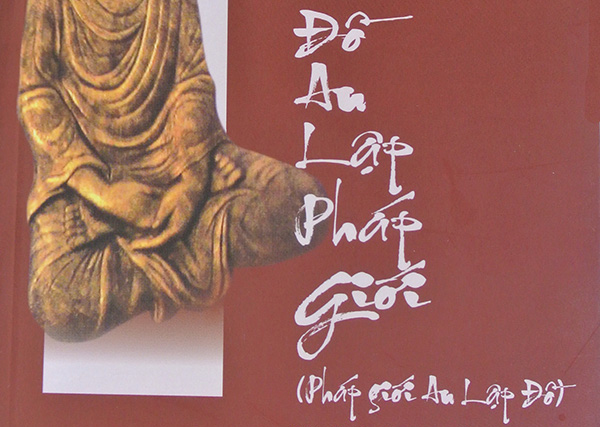 Đồ
An
Lập
Pháp
Giới
(Pháp giới An Lập Đồ)